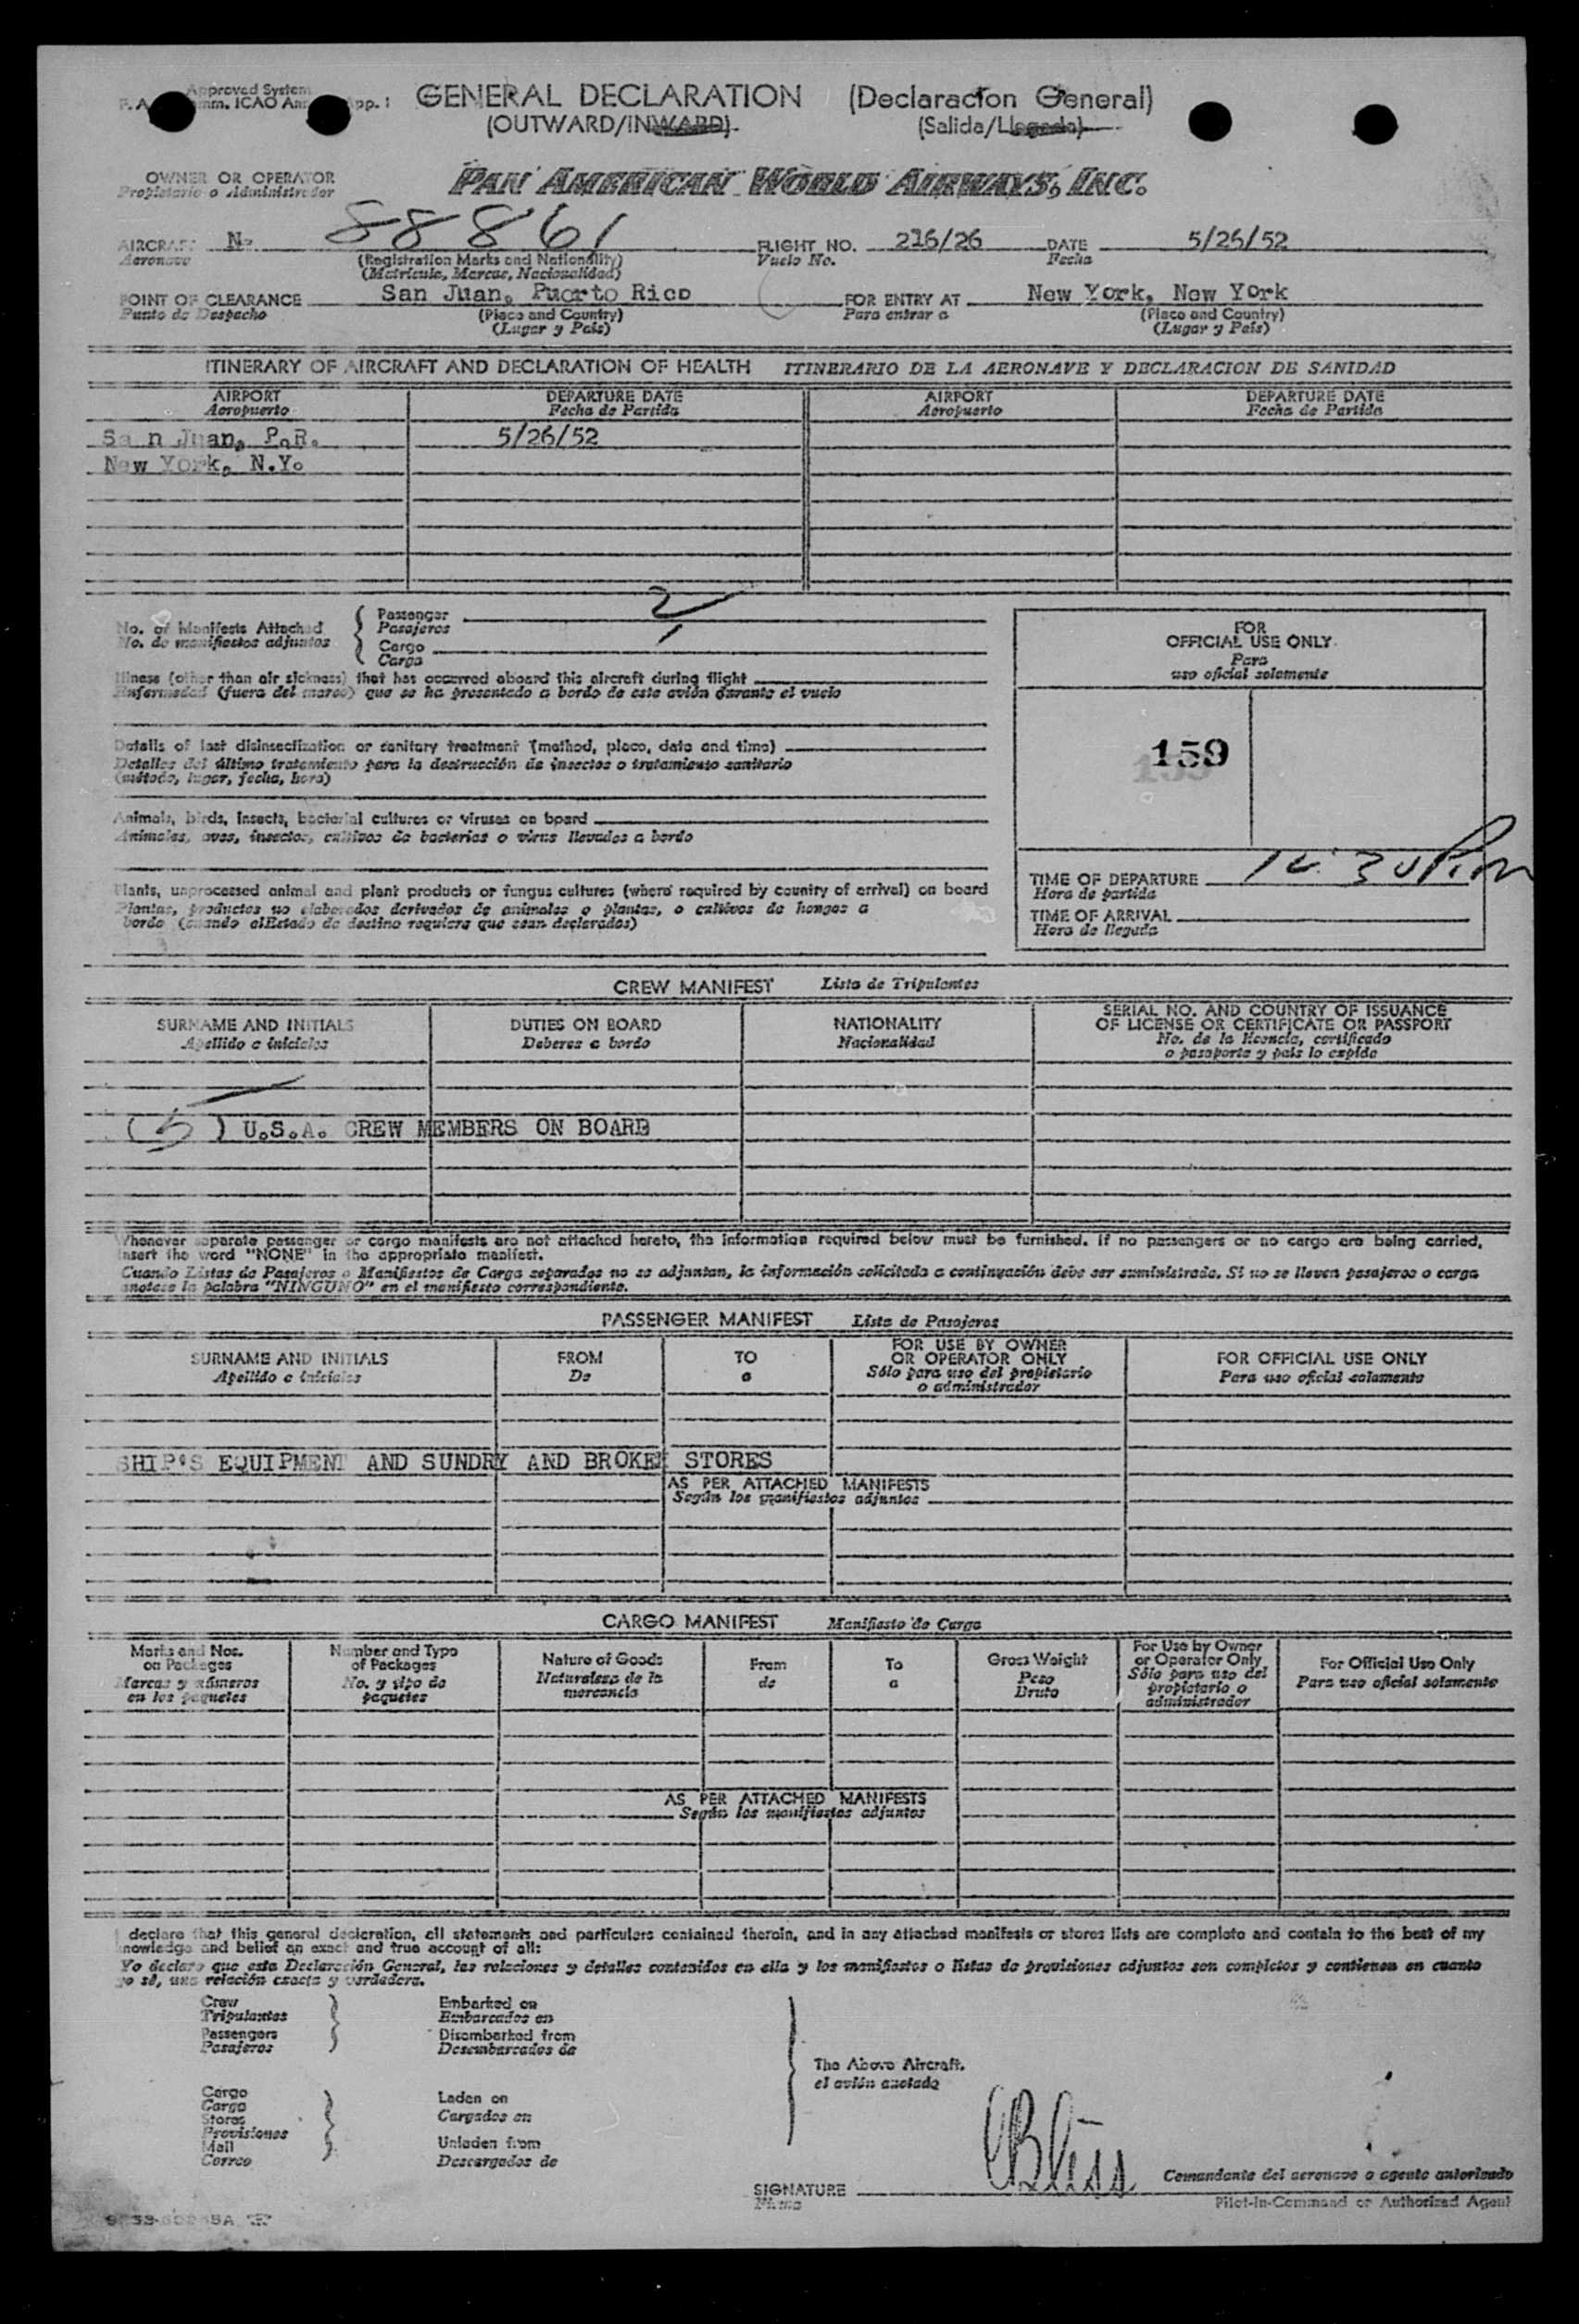 Approved System
GENERAL DECLARATION (Declaracion General)
(OUTWARD/INWARD) (Salida/Llegada)
OWNER OR OPERATOR PAN AMERICAN WORLD AIRWAYS, INC.
Propietario o Administrador
AIRCRAFT No 88861 FLIGHT NO. 216/26 DATE 5/26/52
Aeronave (Registration Marks and Nationality) Vuelo No. Fecha
(Matricula, Marcas, Nacionalidad)
POINT OF CLEARANCE San Juan, Puerto Rico FOR ENTRY AT New York, New York
Punto de Despacho (Place and Country) Para entrar a (Place and Country)
(Lugar y País) (Lugar y País)
ITINERARY OF AIRCRAFT AND DECLARATION OF HEALTH ITINERARIO DE LA AERONAVE Y DECLARACION DE SANIDAD
AIRPORT DEPARTURE DATE AIRPORT DEPARTURE DATE
Aeropuerto Fecha de Partida Aeropuerto Fecha de Partida
San Juan, P.R. 5/26/52
New York, N.Y.
No. of Manifests Attached Passenger 2
No. de manifiestos adjuntos Pasajeros
Cargo 1
Carga
Illness (other than air sickness) that has occurred aboard this aircraft during flight
Enfermedad (fuera del mareo) que se ha presentado a bordo de este avión durante el vuelo
Details of last disinsectization or sanitary treatment (method, place, date and time)
Detalles del último tratamiento para la destrucción de insectos o tratamiento sanitario
(método, lugar, fecha, hora)
Animals, birds, insects, bacterial cultures or viruses on board
Animales, aves, insectos, cultivos de bacterias o virus llevados a bordo
Plants, unprocessed animal and plant products or fungus cultures (where required by country of arrival) on board
Plantas, productos no elaborados derivados de animales o plantas, o cultivos de hongos a
bordo (cuando el Estado de destino requiera que sean declarados)
FOR
OFFICIAL USE ONLY
Para
uso oficial solamente
159
TIME OF DEPARTURE
Hora de partida
TIME OF ARRIVAL
Hora de llegada
CREW MANIFEST Lista de Tripulantes
SURNAME AND INITIALS DUTIES ON BOARD NATIONALITY SERIAL NO. AND COUNTRY OF ISSUANCE
Apellido e iniciales Deberes a bordo Nacionalidad OF LICENSE OR CERTIFICATE OR PASSPORT
No. de la licencia, certificado
o pasaporte y país lo expide
(5) U.S.A. CREW MEMBERS ON BOARD
Whenever separate passenger or cargo manifests are not attached hereto, the information required below must be furnished. If no passengers or no cargo are being carried,
insert the word "NONE" in the appropriate manifest.
Cuando Listas de Pasajeros o Manifiestos de Carga separados no se adjuntan, la información solicitada a continuación debe ser suministrada. Si no se lleven pasajeros o carga
anotese la palabra "NINGUNO" en el manifiesto correspondiente.
PASSENGER MANIFEST Lista de Pasajeros
SURNAME AND INITIALS FROM TO FOR USE BY OWNER OR OPERATOR ONLY FOR OFFICIAL USE ONLY
Apellido e iniciales De a Sólo para uso del propietario o administrador Para uso oficial solamente
SHIP'S EQUIPMENT AND SUNDRY AND BROKEN STORES
AS PER ATTACHED MANIFESTS
Según los manifiestos adjuntos
CARGO MANIFEST Manifiesto de Carga
Marks and Nos. on Packages Number and Type of Packages Nature of Goods From To Gross Weight For Use by Owner or Operator Only For Official Use Only
Marcas y números en los paquetes No. y tipo de paquetes Naturaleza de la mercancía de a Peso Bruto Sólo para uso del propietario o administrador Para uso oficial solamente
AS PER ATTACHED MANIFESTS
Según los manifiestos adjuntos
I declare that this general declaration, all statements and particulars contained therein, and in any attached manifests or stores lists are complete and contain to the best of my
knowledge and belief an exact and true account of all:
Yo declaro que esta Declaración General, las relaciones y detalles contenidos en ella y los manifiestos o listas de provisiones adjuntos son completos y contienen en cuanto
yo sé, una relación exacta y verdadera.
Crew Embarked on
Tripulantes Embarcados en
Passengers Disembarked from
Pasajeros Desembarcados de
The Above Aircraft.
el avión anotado
Cargo Laden on
Carga Cargados en
Stores
Provisiones
Mail Unladen from
Correo Descargados de
SIGNATURE Comandante del aeronave o agente autorizado
Firma Pilot-in-Command or Authorized Agent